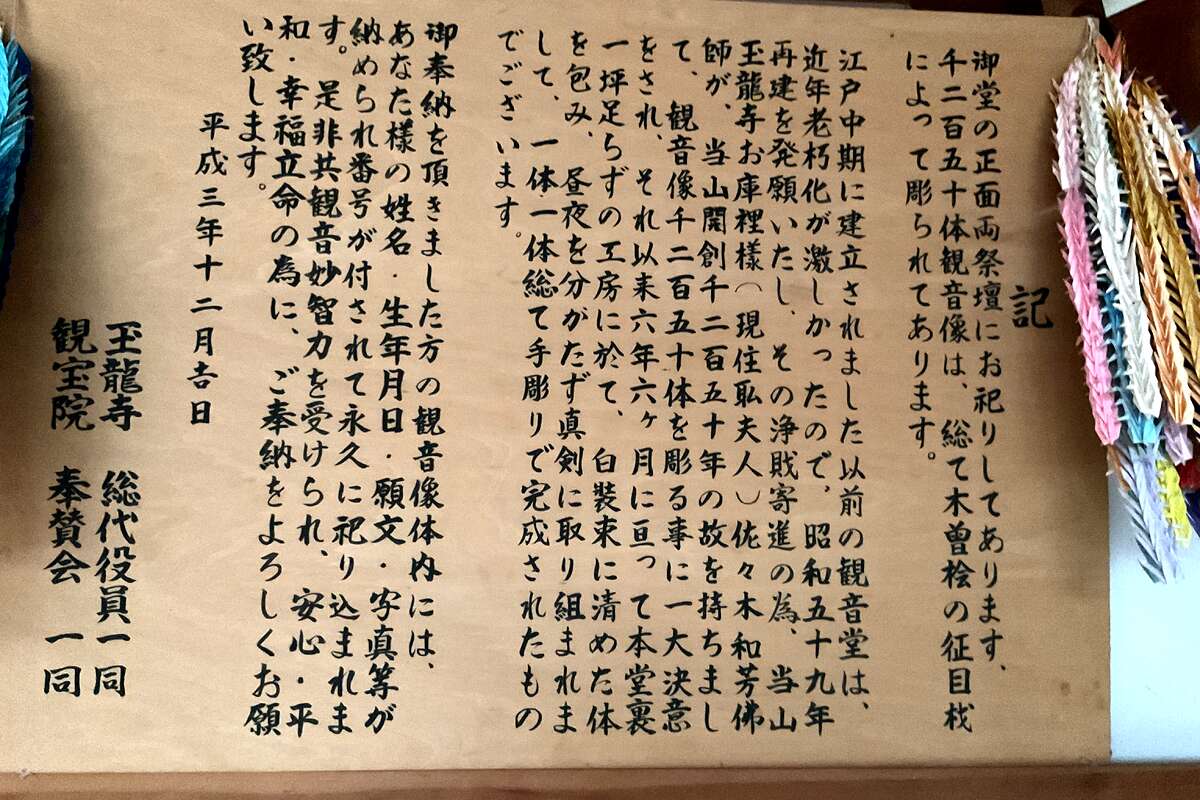 記
御堂の正面両祭壇にお祀りしてあります、
千二百五十体観音像は、総て木曽桧の征目材
によって彫られてあります。
江戸中期に建立されました以前の観音堂は、
近年老朽化が激しかったので、昭和五十九年
再建を発願いたし、その浄財寄進の為、当山
玉龍寺お庫裡様(現住耻夫人)佐々木和芳佛
師が、当山開創千二百五十年の故を持ちまし
て、観音像千二百五十体を彫る事に一大決意
をされ、それ以来六年六ヶ月に亘って本堂裏
一坪足らずの工房に於て、白装束に清めた体
を包み、昼夜を分がたず真剣に取り組まれま
して、一体一体総て手彫りで完成されたもの
でございます。
御奉納を頂きました方の観音像体内には、
あなた様の姓名・生年月日・願文・写真等が
納められ番号が付されて永久に祀り込まれま
す。是非共観音妙智力を受けられ、安心・平
和・幸福立命の為に、ご奉納をよろしくお願
い致します。
平成三年十二月吉日
玉龍寺 総代役員一同
観宝院 奉賛会一同